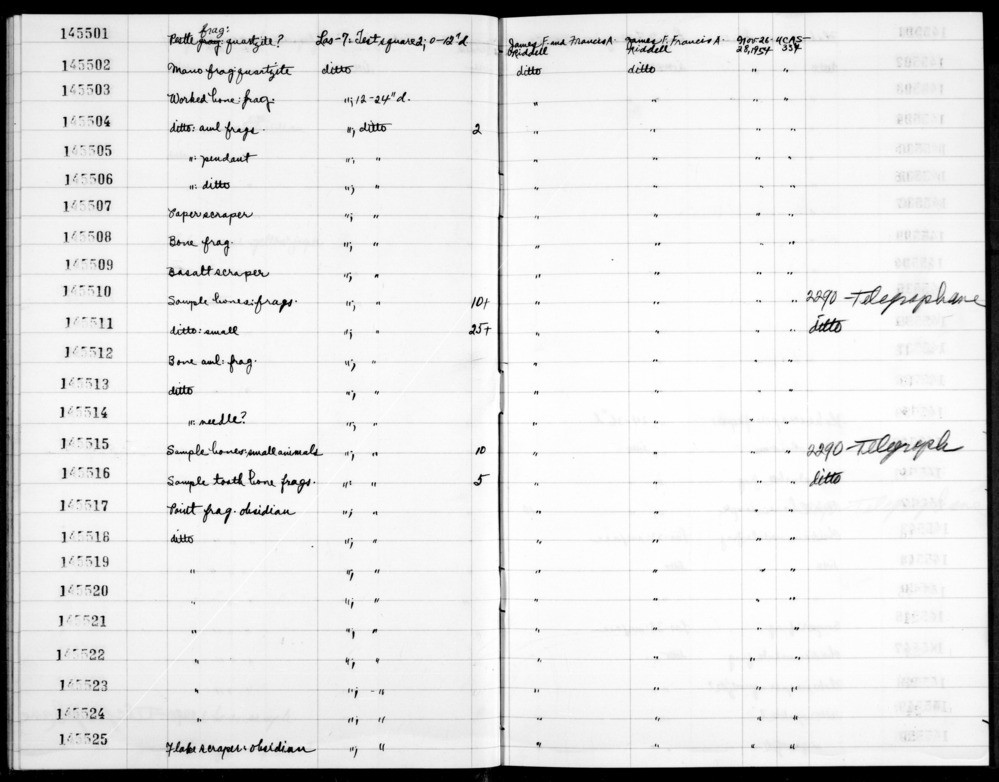 145501 Pestle frag: quartzite? Las-7: Test square 2; 0-12"d James F. and Francis A. Riddell James F. Francis A. Riddell Nov 26-28, 1954 UCAS-334
145502 Mano frag: quartzite ditto ditto ditto " "
145503 Worked bone: frag. "; 12-24"d. " " " "
145504 ditto: awl frags. "; ditto 2 " " " "
145505 ": pendant "; " " " " "
145506 ": ditto "; " " " " "
145507 scraper "; " " " " "
145508 Bone frag. "; " " " " "
145509 Basalt scraper "; " " " " "
145510 Sample bones: frags. "; " 10+ " " " " 2290-Telegraphane
145511 ditto: small "; " 25+ " " " " ditto
145512 Bone awl: frag. "; " " " " "
145513 ditto "; " " " " "
145514 ": needle? "; " " " " "
145515 Sample bones, small animals "; " 10 " " " " 2290-Telegraph
145516 Sample tooth bone frags. "; " 5 " " " " ditto
145517 Point frag. obsidian "; " " " " "
145518 ditto "; " " " " "
145519 " "; " " " " "
145520 " "; " " " " "
145521 " "; " " " " "
145522 " "; " " " " "
145523 " "; " " " " "
145524 " "; " " " " "
145525 Flake scraper: obsidian "; " " " " "